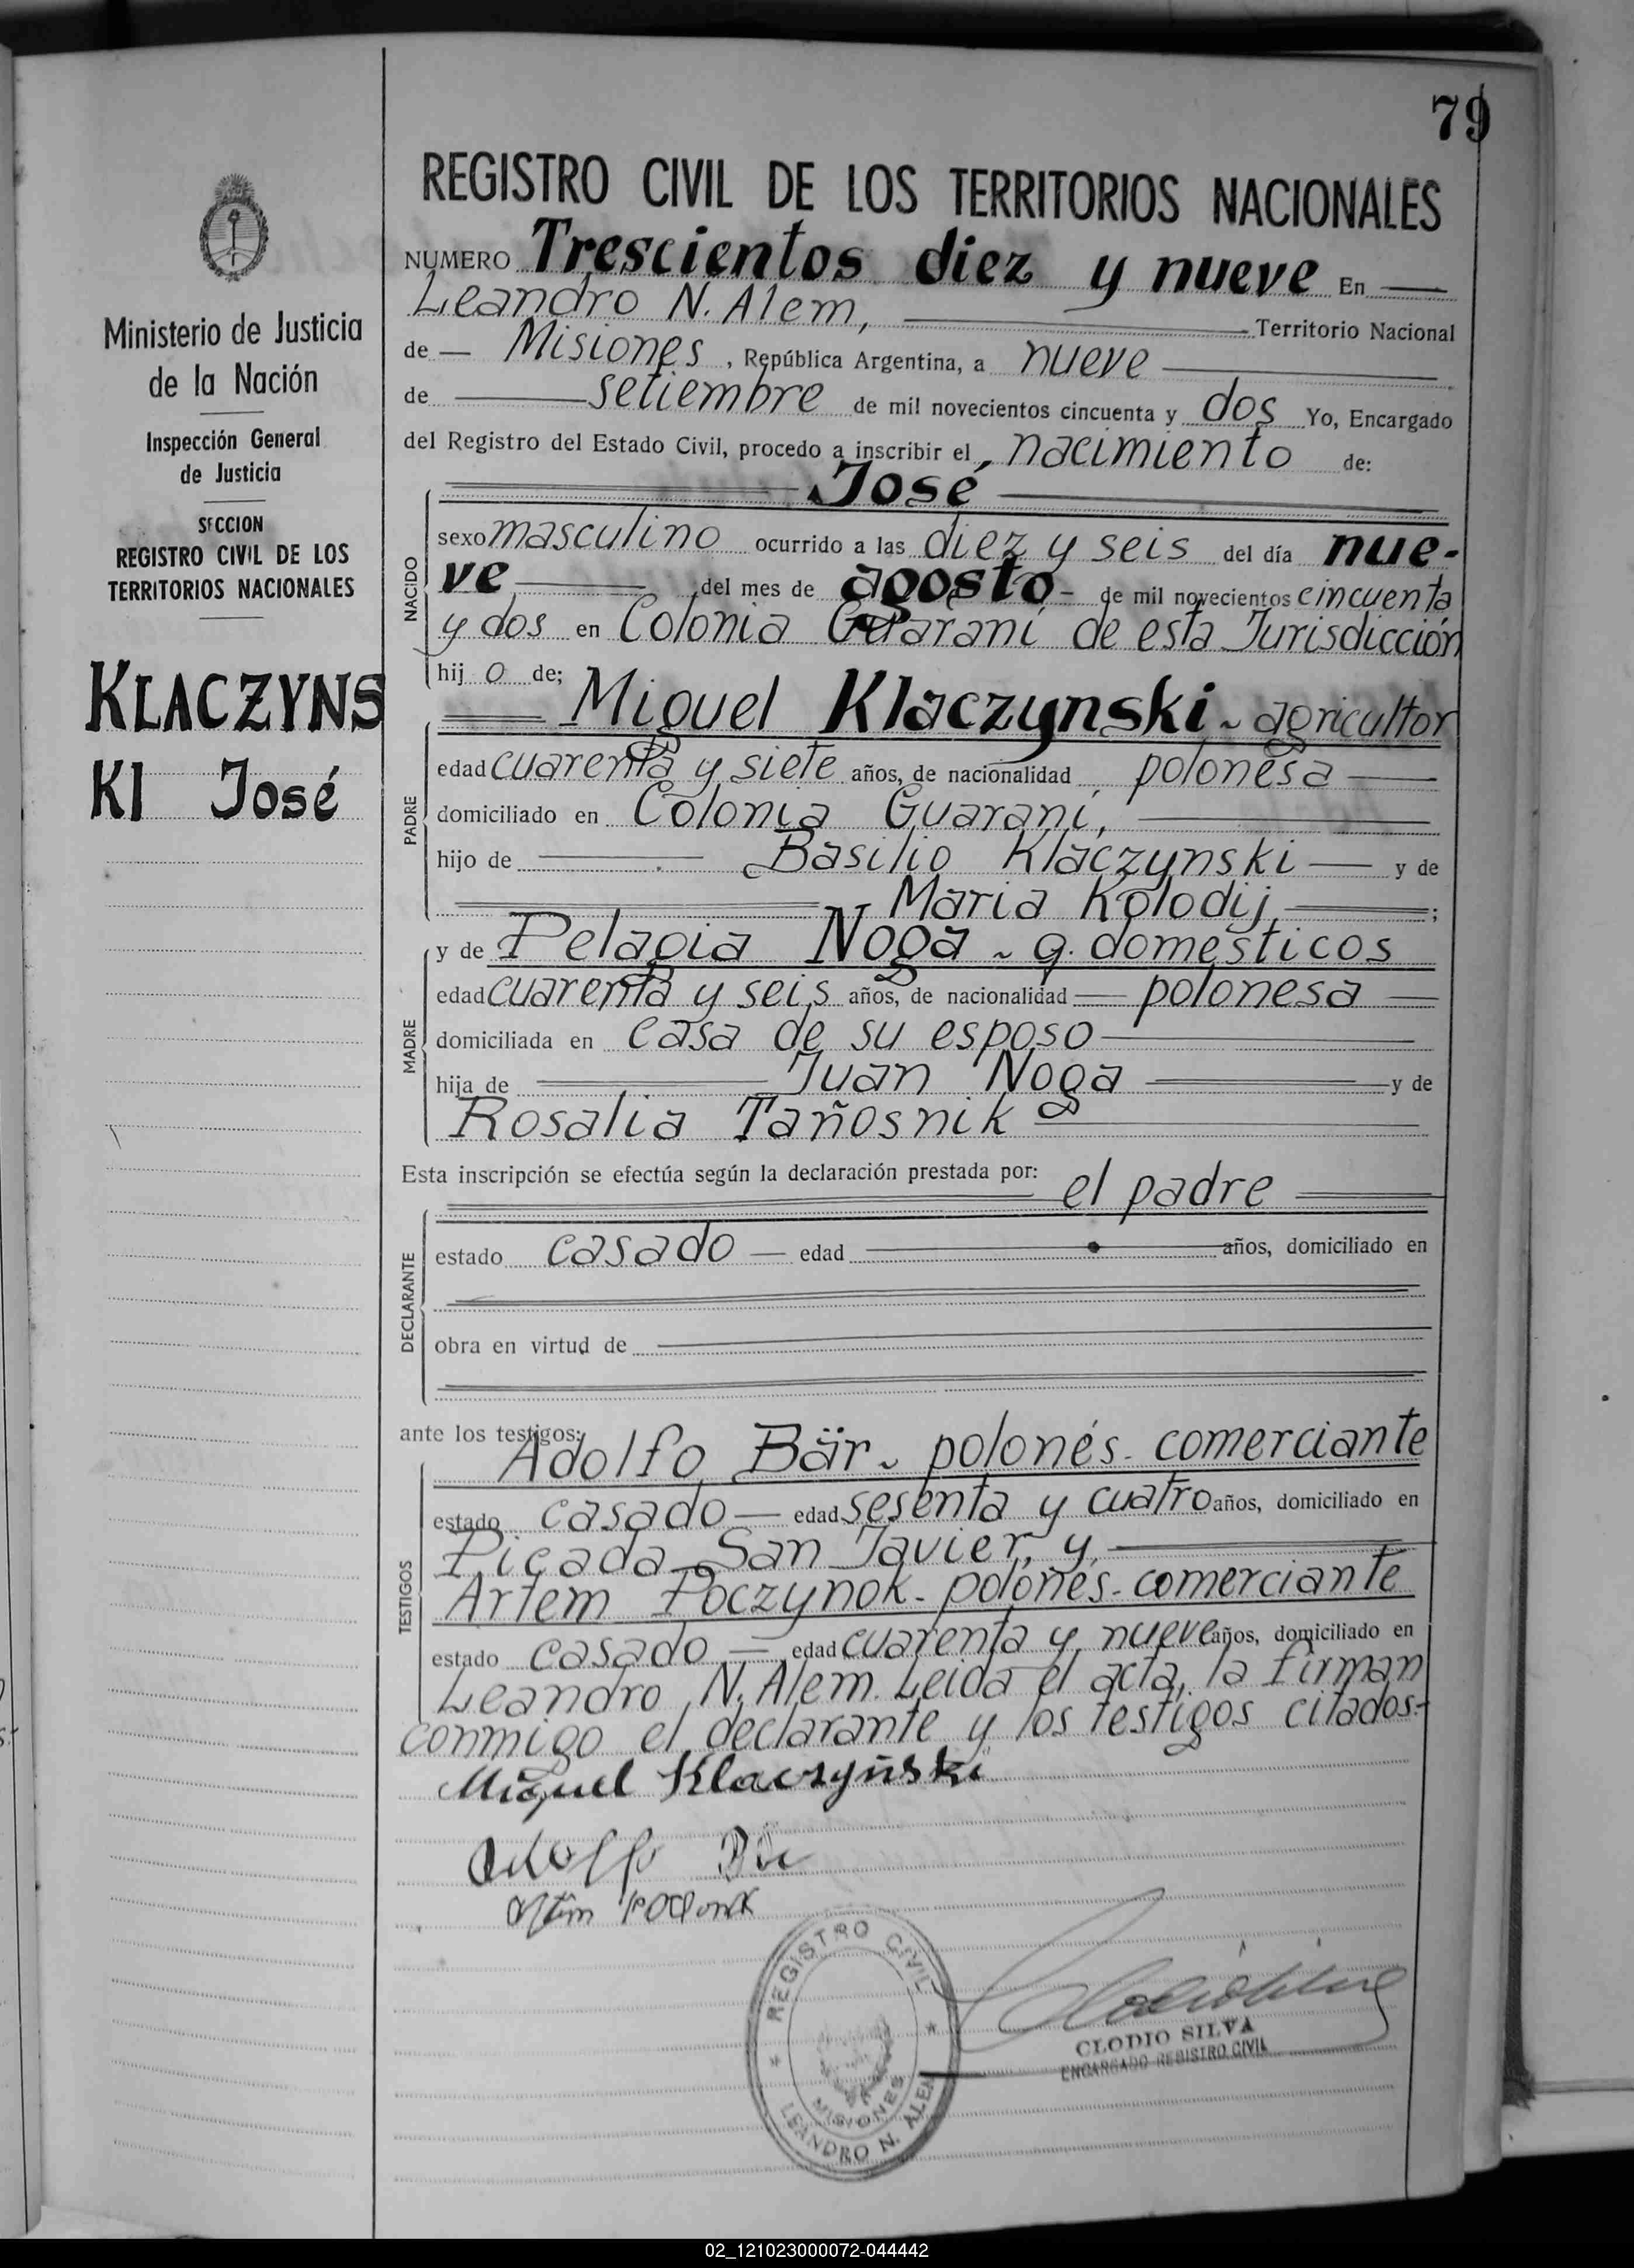 79
Ministerio de Justicia
de la Nación
Inspección General
de Justicia
SECCION
REGISTRO CIVIL DE LOS
TERRITORIOS NACIONALES
KLACZYNS
KI José
REGISTRO CIVIL DE LOS TERRITORIOS NACIONALES
NUMERO Trescientos diez y nueve En
Leandro N. Alem, Territorio Nacional
de Misiones, República Argentina, a nueve
de setiembre de mil novecientos cincuenta y dos Yo, Encargado
del Registro del Estado Civil, procedo a inscribir el nacimiento de:
José
NACIDO
sexo masculino ocurrido a las diez y seis del día nue-
ve del mes de agosto de mil novecientos cincuenta
y dos en Colonia Guaraní de esta Jurisdicción
hijo de;
Miguel Klaczynski - agricultor
PADRE
edad cuarenta y siete años, de nacionalidad polonesa
domiciliado en Colonia Guaraní,
hijo de Basilio Klaczynski y de
Maria Kolodij;
y de Pelagia Noga - q. domesticos
MADRE
edad cuarenta y seis años, de nacionalidad polonesa
domiciliada en casa de su esposo
hija de Juan Noga y de
Rosalia Tañosnik
Esta inscripción se efectúa según la declaración prestada por:
el padre
DECLARANTE
estado casado edad años, domiciliado en
obra en virtud de
ante los testigos:
Adolfo Bär - polonés - comerciante
TESTIGOS
estado casado edad sesenta y cuatro años, domiciliado en
Picada San Javier, y
Artem Poczynok - polonés - comerciante
estado casado edad cuarenta y nueve años, domiciliado en
Leandro N. Alem. Leida el acta, la firman
conmigo el declarante y los testigos citados.-
Miguel Klaczyński
Adolfo Bär
REGISTRO CIVIL
MISIONES
LEANDRO N. ALEM
CLODIO SILVA
ENCARGADO REGISTRO CIVIL
02_121023000072-044442